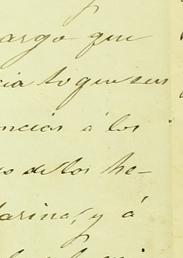 argo que
cia to que sus
encias á los
o de los he-
arina, y á